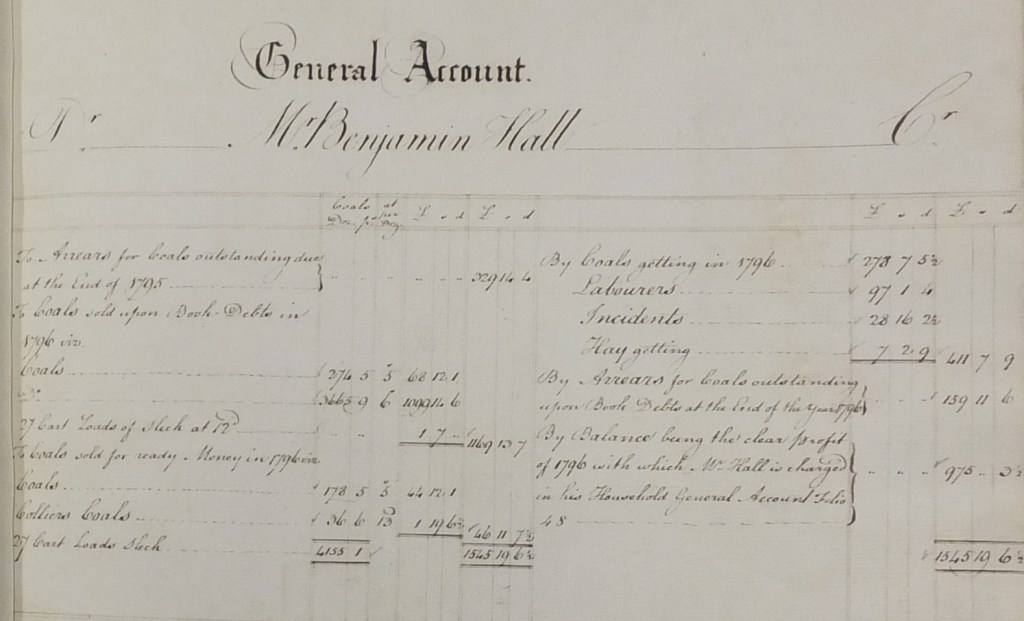 General Account.
Dr Mr Benjamin Hall Cr
Coals at
Doz. per £ s d £ s d £ s d £ s d
To Arrears for Coals outstanding due
at the End of 1795 329 14 4
To Coals sold upon Book-Debts in
1796 viz.
Coals 274 5 5 68 12 1
Do. 3665 9 6 1099 14 6
27 Cart Loads of Slech at 12d 1 7 .. 1169 13 7
To Coals sold for ready Money in 1796 viz
Coals 178 5 5 44 12 1
Colliers Coals 36 6 13 1 19 6½ 46 11 7½
27 Cart Loads Slech 4155 1 1545 19 6½
By Coals getting in 1796 278 7 5½
Labourers 97 1 4
Incidents 28 16 2½
Hay getting 7 2 9 411 7 9
By Arrears for Coals outstanding
upon Book-Debts at the End of the Year 1796 159 11 6
By Balance being the clear profit
of 1796 with which Mr Hall is charged 975 .. 3½
in his Household General Account Folio
48
1545 19 6½